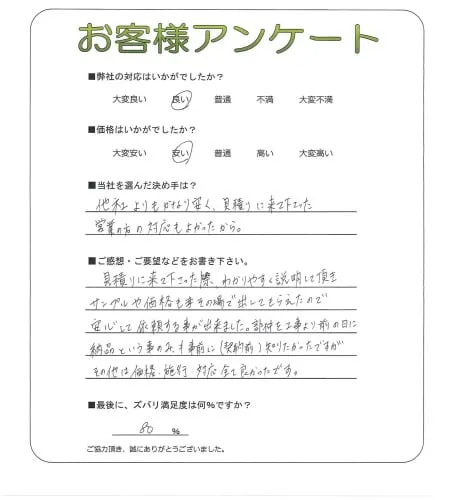 お客様アンケート
■弊社の対応はいかがでしたか？
大変良い 良い 普通 不満 大変不満
■価格はいかがでしたか？
大変安い 安い 普通 高い 大変高い
■当社を選んだ決め手は？
他社よりもかなり安く、見積りに来て下さった
営業の方の対応もよかったから。
■ご感想・ご要望などをお書き下さい。
見積りに来て下さった際、わかりやすく説明して頂き
サンプルや価格もその場で出してもらえたので
安心して依頼する事が出来ました。部材を工事より前の日に
納品という事のみ事前に(契約前)知りたかったですが
その他は価格、施行、対応全て良かったです。
■最後に、ズバリ満足度は何%ですか？
80 %
ご協力頂き、誠にありがとうございました。